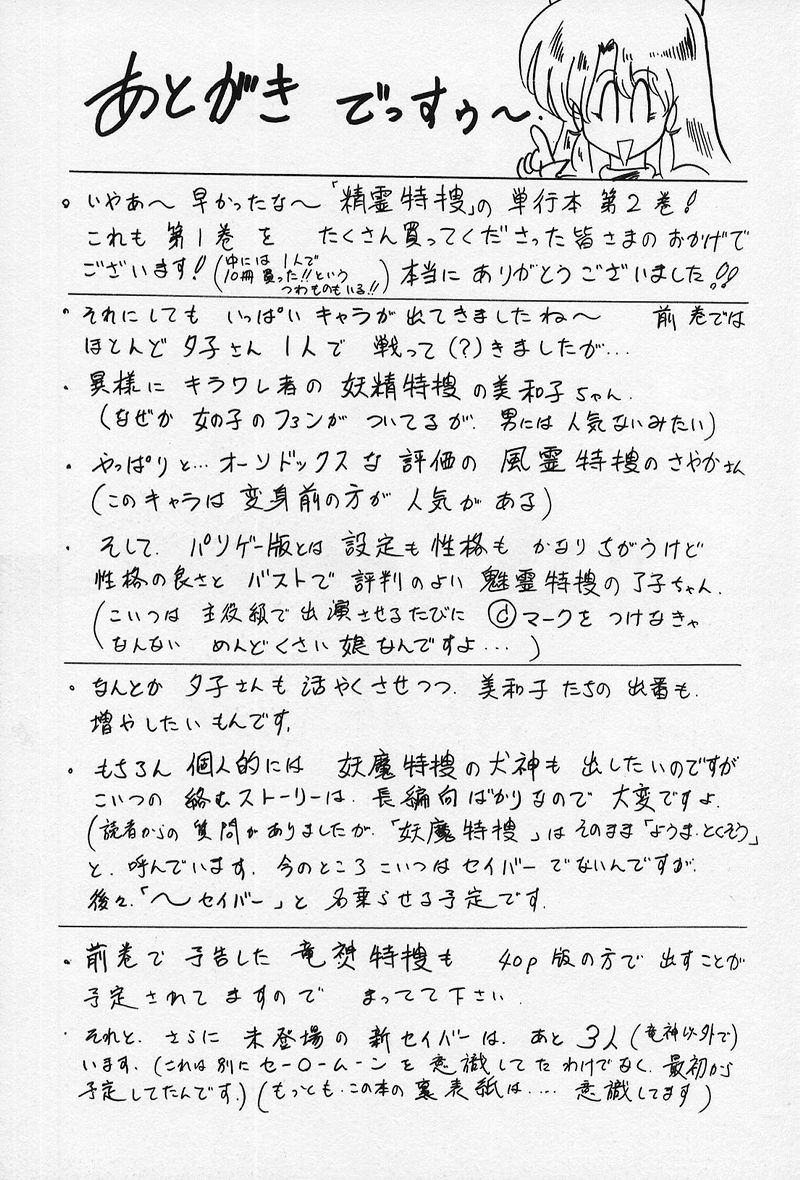 あとがき でっすぅ〜.
。いやあ〜 早かったな〜「精霊特捜」の 単行本 第2巻!
これも 第1巻 を たくさん買ってくださった皆さまの おかげで
ございます! (中には 1人で 10冊 買った!! という つわものもいる!!) 本当に ありがとうございました!!
・それにしても いっぱい キャラが 出てきましたね〜 前巻では
ほとんど 夕子さん 1人で 戦って(?)きましたが…
・異様に キラワレ者の 妖精特捜 の美和子ちゃん.
(なぜか 女の子の ファンが ついてるが. 男には 人気ないみたい)
・やっぱりと… オーソドックス な 評価の 風霊特捜のさやかさん
(このキャラは 変身前の方が 人気が ある)
・そして. パソゲー版とは 設定も 性格も かなり ちがうけど
性格の良さと バストで 評判のよい 魅霊特捜の了子ちゃん.
(こいつは 主役級で 出演させるたびに ⓒマークを つけなきゃ
なんない めんどくさい 娘なんですよ…)
・なんとか 夕子さんも 活やくさせつつ. 美和子 たちの 出番も.
増やしたい もんです.
・もちろん 個人的には 妖魔特捜の犬神も 出したいのですが
こいつの 絡むストーリーは. 長編向ばかりなので 大変ですよ.
(読者からの 質問がありましたが.「妖魔特捜」は そのまま「ようま.とくそう」
と. 呼んでいます. 今のところ こいつは セイバー でないんですが.
後々.「〜セイバー」と 名乗らせる予定です.
・前巻で 予告した 竜神特捜も 40p 版の方で 出すことが
予定されて ますので まってて下さい.
・それと. さらに 未登場の 新セイバーは. あと 3人 (竜神以外で)
います. (これは 別に セー○ームーン を 意識して たわけでなく. 最初から
予定してたんです.) (もっとも.この本の 裏表紙は…. 意識してます)